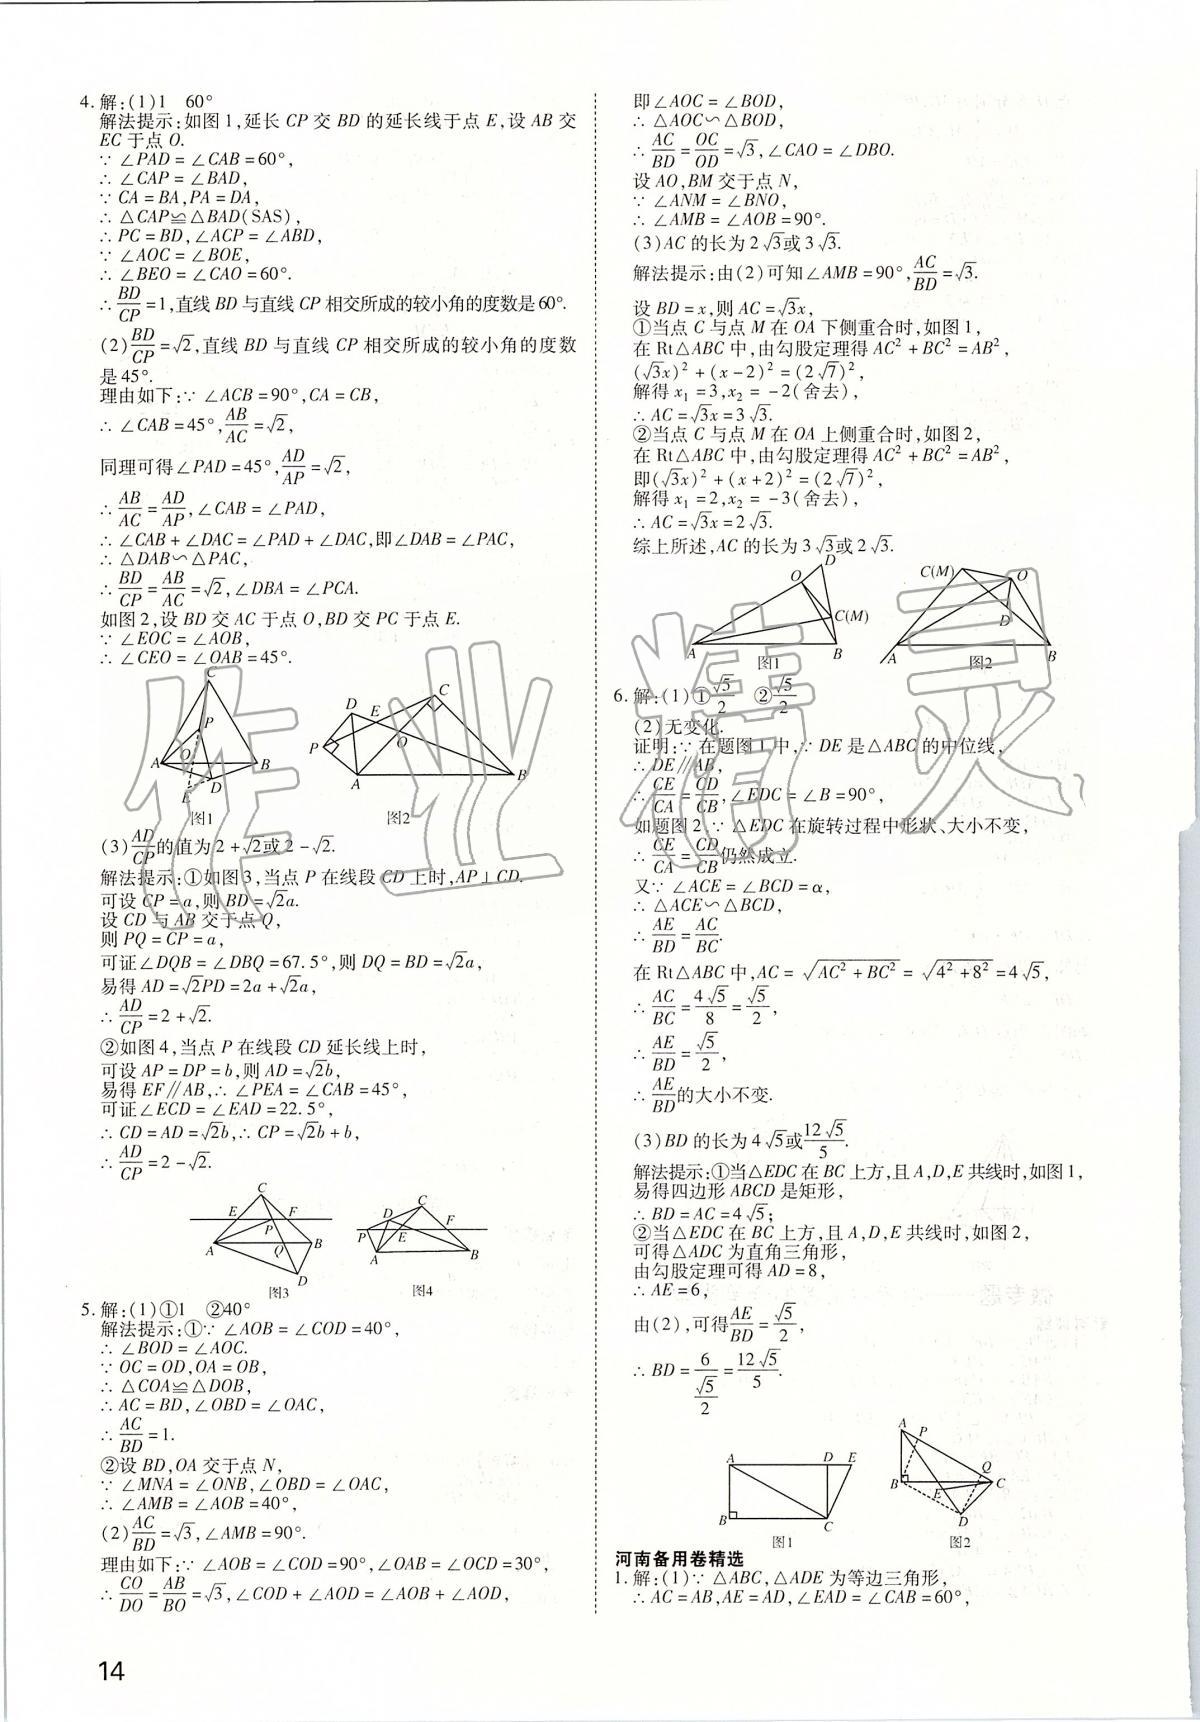 4.解:(1)1　60°
解法提示:如图1,延长CP交BD的延长线于点E,设AB交
EC于点O.
∵∠PAD=∠CAB=60°,
∴∠CAP=∠BAD,
∵CA=BA,PA=DA,
∴△CAP≌△BAD(SAS),
∴PC=BD,∠ACP=∠ABD,
∵∠AOC=∠BOE,
∴∠BEO=∠CAO=60°.
∴BD/CP=1,直线BD与直线CP相交所成的较小角的度数是60°.
(2)BD/CP=√2,直线BD与直线CP相交所成的较小角的度数
是45°.
理由如下:∵∠ACB=90°,CA=CB,
∴∠CAB=45°,AB/AC=√2,
同理可得∠PAD=45°,AD/AP=√2,
∴AB/AC=AD/AP,∠CAB=∠PAD,
∴∠CAB+∠DAC=∠PAD+∠DAC,即∠DAB=∠PAC,
∴△DAB∽△PAC,
∴BD/CP=AB/AC=√2,∠DBA=∠PCA.
如图2,设BD交AC于点O,BD交PC于点E.
∵∠EOC=∠AOB,
∴∠CEO=∠OAB=45°.
C
P
O
A
B
E
D
图1
D
E
C
P
O
A
B
图2
(3)AD/CP的值为2+√2或2-√2.
解法提示:①如图3,当点P在线段CD上时,AP⊥CD.
可设CP=a,则BD=√2a.
设CD与AB交于点Q,
则PQ=CP=a,
可证∠DQB=∠DBQ=67.5°,则DQ=BD=√2a,
易得AD=√2PD=2a+√2a,
∴AD/CP=2+√2.
②如图4,当点P在线段CD延长线上时,
可设AP=DP=b,则AD=√2b,
易得EF∥AB,∴∠PEA=∠CAB=45°,
可证∠ECD=∠EAD=22.5°,
∴CD=AD=√2b,∴CP=√2b+b,
∴AD/CP=2-√2.
C
E
F
P
A
Q
B
D
图3
C
D
F
P
E
A
B
图4
5.解:(1)①1　②40°
解法提示:①∵∠AOB=∠COD=40°,
∴∠BOD=∠AOC.
∵OC=OD,OA=OB,
∴△COA≌△DOB,
∴AC=BD,∠OBD=∠OAC,
∴AC/BD=1.
②设BD,OA交于点N,
∵∠MNA=∠ONB,∠OBD=∠OAC,
∴∠AMB=∠AOB=40°,
(2)AC/BD=√3,∠AMB=90°.
理由如下:∵∠AOB=∠COD=90°,∠OAB=∠OCD=30°,
∴CO/DO=AB/BO=√3,∠COD+∠AOD=∠AOB+∠AOD,
14
即∠AOC=∠BOD,
∴△AOC∽△BOD,
∴AC/BD=OC/OD=√3,∠CAO=∠DBO.
设AO,BM交于点N,
∵∠ANM=∠BNO,
∴∠AMB=∠AOB=90°.
(3)AC的长为2√3或3√3.
解法提示:由(2)可知∠AMB=90°,AC/BD=√3.
设BD=x,则AC=√3x,
①当点C与点M在OA下侧重合时,如图1,
在Rt△ABC中,由勾股定理得AC²+BC²=AB²,
(√3x)²+(x-2)²=(2√7)²,
解得x₁=3,x₂=-2(舍去),
∴AC=√3x=3√3.
②当点C与点M在OA上侧重合时,如图2,
在Rt△ABC中,由勾股定理得AC²+BC²=AB²,
即(√3x)²+(x+2)²=(2√7)²,
解得x₁=2,x₂=-3(舍去),
∴AC=√3x=2√3.
综上所述,AC的长为3√3或2√3.
D
O
C(M)
A
B
图1
C(M)
O
D
A
B
图2
6.解:(1)①√5/2　②√5/2
(2)无变化.
证明:∵在题图1中,∵DE是△ABC的中位线,
∴DE∥AB,
∴CE/CA=CD/CB,∠EDC=∠B=90°,
如题图2∵△EDC在旋转过程中形状、大小不变,
∴CE/CA=CD/CB仍然成立.
又∵∠ACE=∠BCD=α,
∴△ACE∽△BCD,
∴AE/BD=AC/BC.
在Rt△ABC中,AC=√(AC²+BC²)=√(4²+8²)=4√5,
∴AC/BC=4√5/8=√5/2,
∴AE/BD=√5/2,
∴AE/BD的大小不变.
(3)BD的长为4√5或12√5/5.
解法提示:①当△EDC在BC上方,且A,D,E共线时,如图1,
易得四边形ABCD是矩形,
∴BD=AC=4√5;
②当△EDC在BC上方,且A,D,E共线时,如图2,
可得△ADC为直角三角形,
由勾股定理可得AD=8,
∴AE=6,
由(2),可得AE/BD=√5/2,
∴BD=6/(√5/2)=12√5/5.
A
D
E
B
C
图1
A
P
Q
B
E
C
D
图2
河南备用卷精选
1.解:(1)∵△ABC,△ADE为等边三角形,
∴AC=AB,AE=AD,∠EAD=∠CAB=60°,
作业精灵